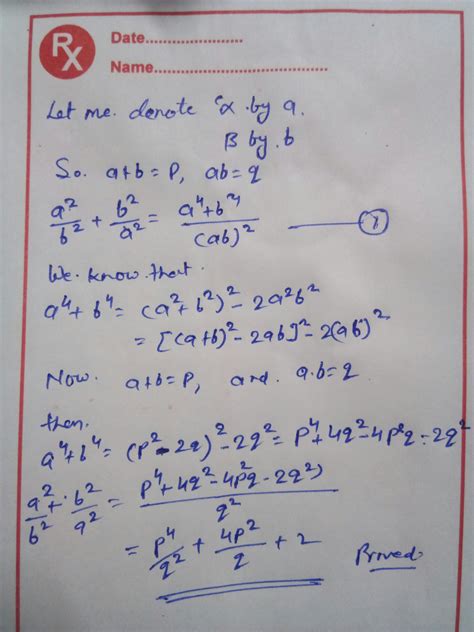 Rx
Date......................
Name........................................
Let me. denote α by a.
B by. b
So. a+b = P, ab = q
a²/b² + b²/a² = (a⁴+b⁴)/(ab)² ——— (1)
We know that.
a⁴ + b⁴ = (a² + b²)² - 2a²b²
= [(a+b)² - 2ab]² - 2(ab)²
Now. a+b = P, and. a.b = q
then.
a⁴+b⁴ = (P² - 2q)² - 2q² = P⁴ + 4q² - 4P²q - 2q²
a²/b² + b²/a² = (P⁴ + 4q² - 4P²q - 2q²)/q²
= P⁴/q² + 4P²/q + 2 Proved.